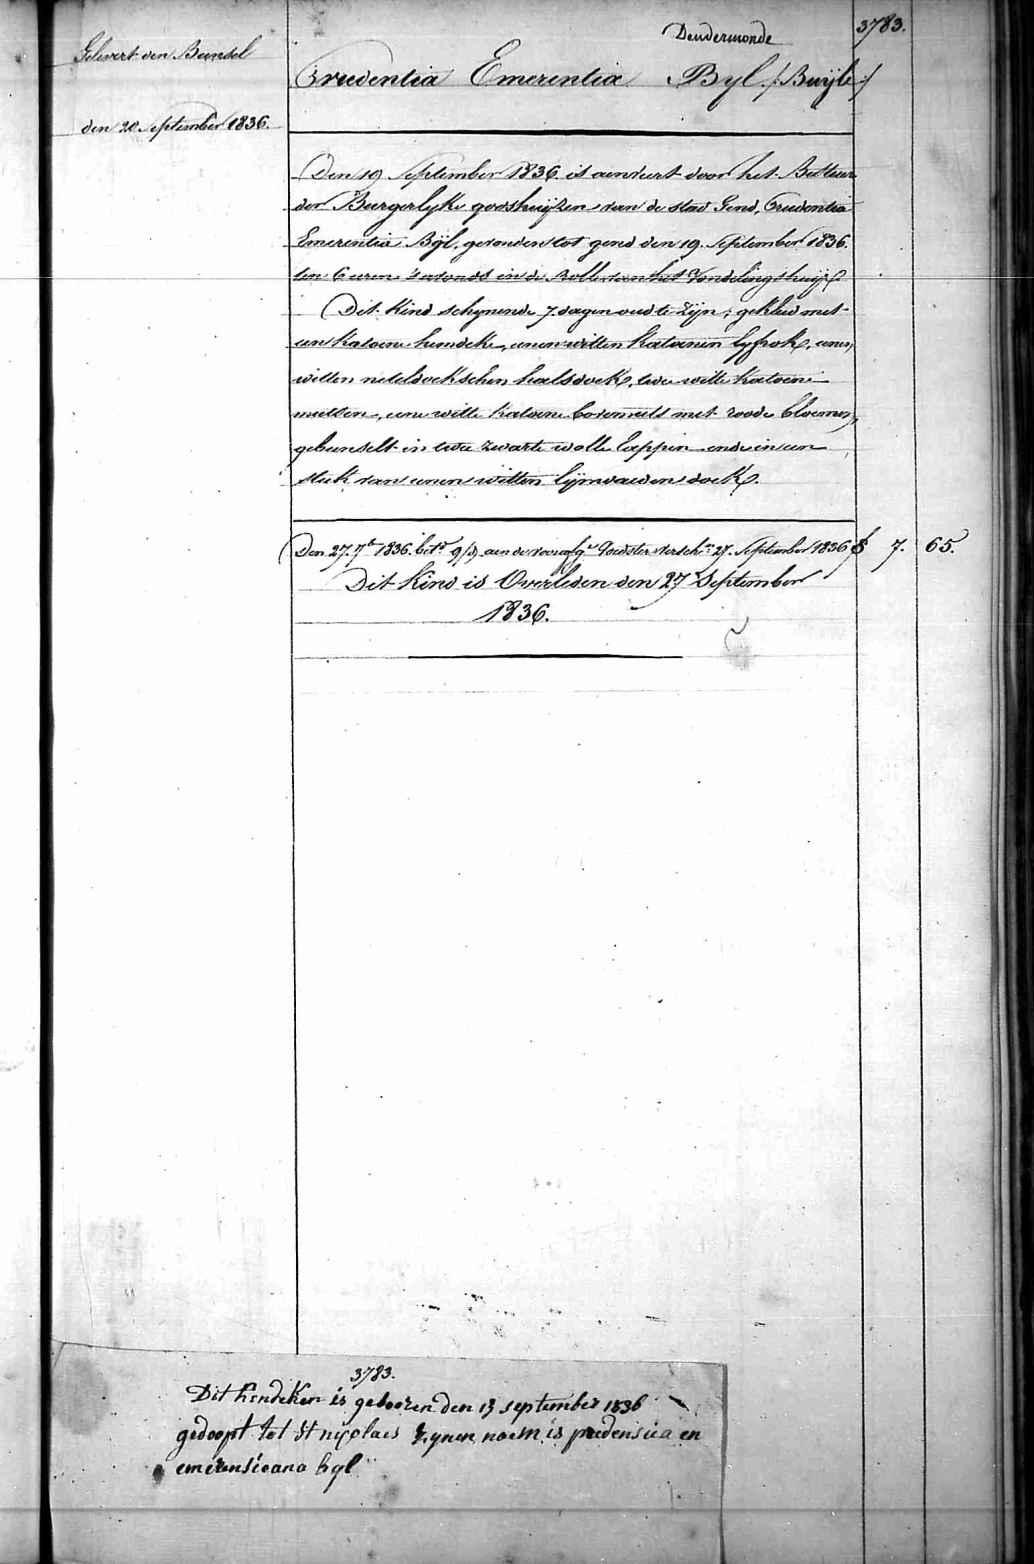 3783.
Dendermonde
Gelevert den Bundsel
Prudentia Emerentia Byl. /: Buÿle :/
den 20 September 1836.
Den 19 September 1836 is aenveert door het Bestuur
der Burgerlyke godshuijzen van de stad Gend, Prudentia
Emerentia Bÿl, gevonden tot gend den 19. September 1836.
ten 6 uren s'avonds in de Rolle van het Vondelingshuijs
Dit Kind schynende 7 dagen oud te Zijn; gekleed met
een Katoene hemdeke, eenen witten Katoenen lyfrok, eenen
witten neteldoekschen halsdoek, twee witte Katoene
mutsen, eene witte Katoene bovenmuts met roode bloemen,
gebunselt in twee zwarte wolle lappen ende in een
stuk van eenen witten lijnwaeden doek.
Den 27. 7b 1836. betd aen de voedster 27. September 1836 f 7. 65.
Dit Kind is Overleden den 27 September
1836.
3783.
Dit kendeken is geboozen den 13 september 1836
gedoopt tot St nycolaes zynen naem is prudensiea en
emerensieana byl